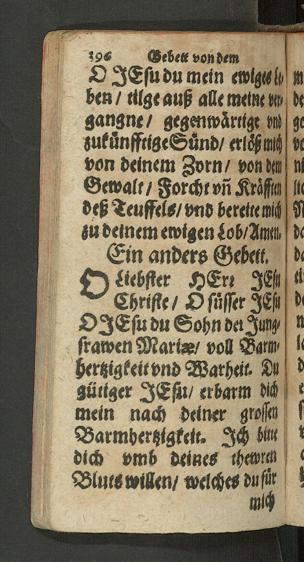 396 Gebett von dem
O JEsu du mein ewiges Le-
ben / tilge auß alle meine ver-
gangne / gegenwärtige vnd
zukünfftige Sünd / erlöß mich
von deinem Zorn / von dem
Gewalt / Forcht vñ Kräfften
deß Teuffels / vnd bereite mich
zu deinem ewigen Lob / Amen.
Ein anders Gebett.
O Liebster HErr JEsu
Christe / O süsser JEsu
O JEsu du Sohn der Jung-
frawen Mariæ / voll Barm-
hertzigkeit vnd Warheit. Du
gütiger JEsu / erbarm dich
mein nach deiner grossen
Barmhertzigkeit. Ich bitte
dich vmb deines thewren
Bluts willen / welches du für
mich